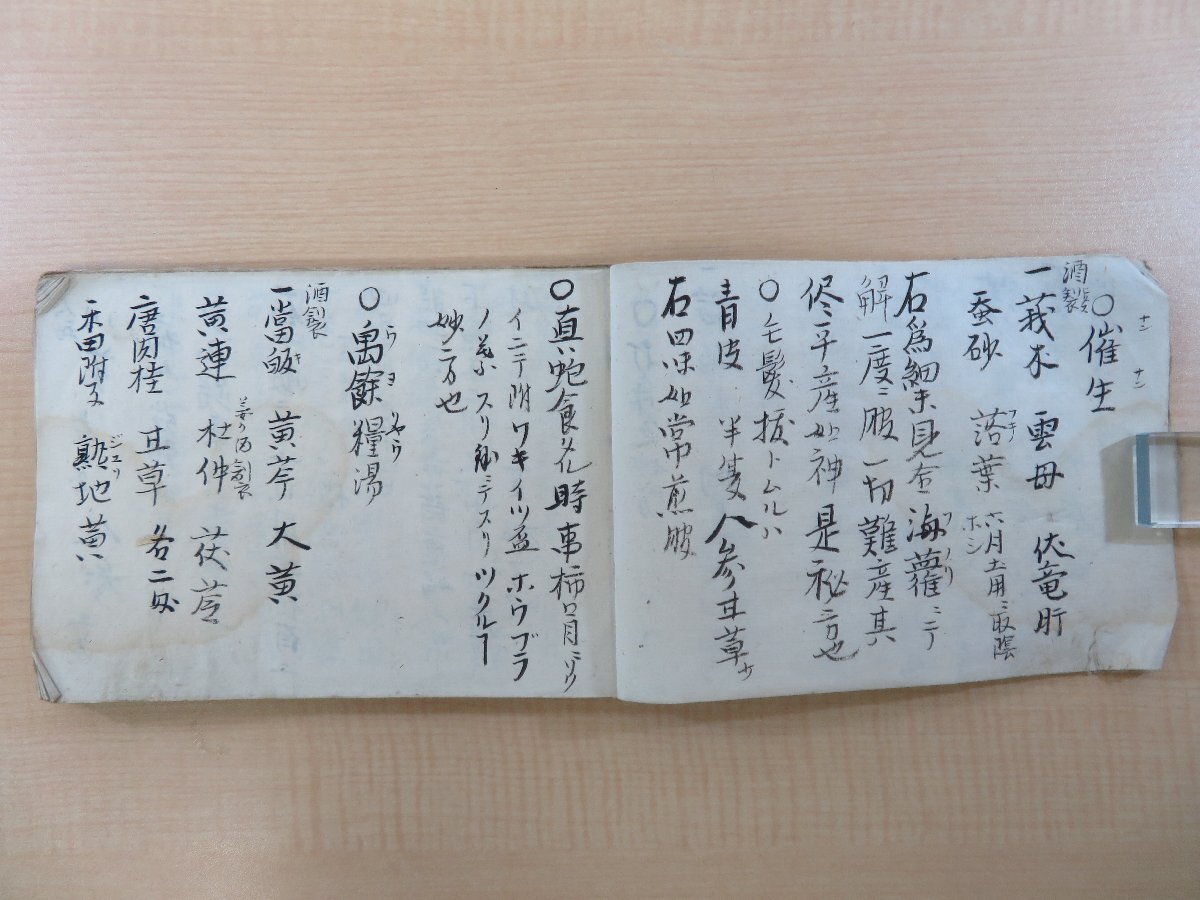 ○催生
酒製
一莪朮 雲母 伏竜肝
蚕砂 落葉 六月土用ニ取陰ホシ
右為細末見合海蘿ニテ
解一度ニ服一切難産其
侭平産如神是秘方也
○毛髪抜トムルハ
青皮 半夏 人参 甘草少
右四味如常煎服
○真蛇食タル時串柿口目ニツケ
イニテ附ワキイツ盃ホウブラ
ノ葉スリ鉢ニテスリツクル
妙方也
○禹餘糧湯
酒製
一當皈 黄芩 大黄
黄連 杜仲 茯苓
唐肉桂 甘草 各二匁
禾田附子 熟地黄